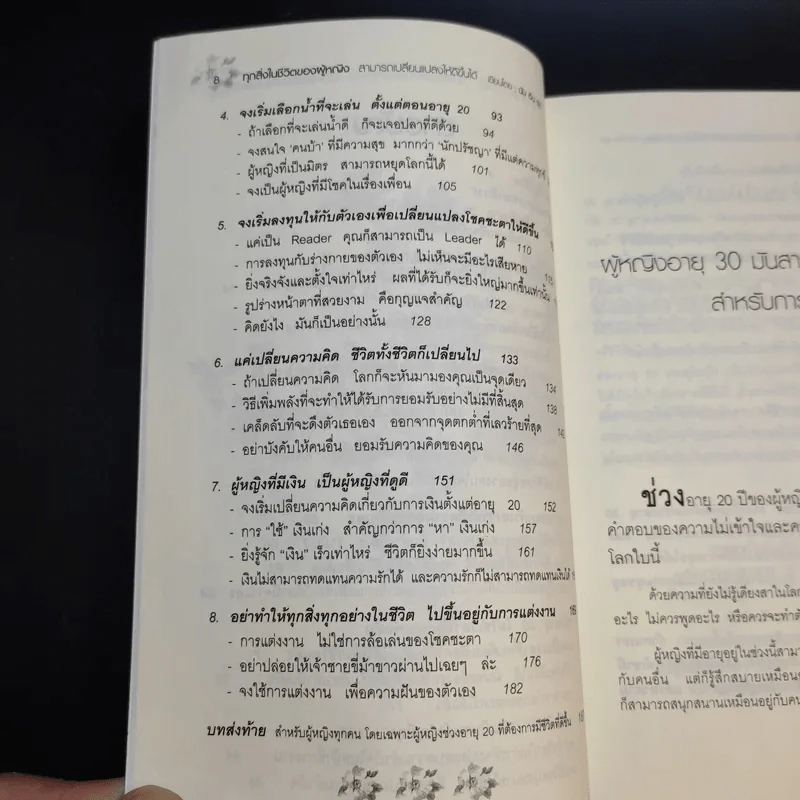 8 ทุกสิ่งในชีวิตของผู้หญิง สามารถเปลี่ยนแปลงให้ดีขึ้นได้ เขียนโดย :
4. จงเริ่มเลือกน้ำที่จะเล่น ตั้งแต่ตอนอายุ 20 93
- ถ้าเลือกที่จะเล่นน้ำดี ก็จะเจอปลาที่ดีด้วย 94
- จงสนใจ 'คนบ้า' ที่มีความสุข มากกว่า 'นักปรัชญา' ที่มีแต่ความทุกข์
- ผู้หญิงที่เป็นมิตร สามารถหยุดโลกนี้ได้ 101
- จงเป็นผู้หญิงที่มีโชคในเรื่องเพื่อน 105
5. จงเริ่มลงทุนให้กับตัวเองเพื่อเปลี่ยนแปลงโชคชะตาให้ดีขึ้น
- แค่เป็น Reader คุณก็สามารถเป็น Leader ได้ 110
- การลงทุนกับร่างกายของตัวเอง ไม่เห็นจะมีอะไรเสียหาย
- ยิ่งจริงจังและตั้งใจเท่าไหร่ ผลที่ได้รับก็จะยิ่งใหญ่มากขึ้นเท่านั้น
- รูปร่างหน้าตาที่สวยงาม คือกุญแจสำคัญ 122
- คิดยังไง มันก็เป็นอย่างนั้น 128
6. แค่เปลี่ยนความคิด ชีวิตทั้งชีวิตก็เปลี่ยนไป 133
- ถ้าเปลี่ยนความคิด โลกก็จะหันมามองคุณเป็นจุดเดียว 134
- วิธีเพิ่มพลังที่จะทำให้ได้รับการยอมรับอย่างไม่มีที่สิ้นสุด 138
- เคล็ดลับที่จะดึงตัวเธอเอง ออกจากจุดตกต่ำที่เลวร้ายที่สุด
- อย่าบังคับให้คนอื่น ยอมรับความคิดของคุณ 146
7. ผู้หญิงที่มีเงิน เป็นผู้หญิงที่ดูดี 151
- จงเริ่มเปลี่ยนความคิดเกี่ยวกับการเงินตั้งแต่อายุ 20 152
- การ "ใช้" เงินเก่ง สำคัญกว่าการ "หา" เงินเก่ง 157
- ยิ่งรู้จัก "เงิน" เร็วเท่าไหร่ ชีวิตก็ยิ่งง่ายมากขึ้น 161
- เงินไม่สามารถทดแทนความรักได้ และความรักก็ไม่สามารถทดแทนเงินได้
8. อย่าทำให้ทุกสิ่งทุกอย่างในชีวิต ไปขึ้นอยู่กับการแต่งงาน
- การแต่งงาน ไม่ใช่การล้อเล่นของโชคชะตา 170
- อย่าปล่อยให้เจ้าชายขี่ม้าขาวผ่านไปเฉยๆ ล่ะ 176
- จงใช้การแต่งงาน เพื่อความฝันของตัวเอง 182
บทส่งท้าย สำหรับผู้หญิงทุกคน โดยเฉพาะผู้หญิงช่วงอายุ 20 ที่ต้องการมีชีวิตที่ดีขึ้น
ผู้หญิงอายุ 30 มันสา
สำหรับการ
ช่วงอายุ 20 ปีของผู้หญิ
คำตอบของความไม่เข้าใจและค
โลกใบนี้
ด้วยความที่ยังไม่รู้เดียงสาในโลก
อะไร ไม่ควรพูดอะไร หรือควรจะทำตัว
ผู้หญิงที่มีอายุอยู่ในช่วงนี้สามา
กับคนอื่น แต่ก็รู้สึกสบายเหมือน
ก็สามารถสนุกสนานเหมือนอยู่กับคน